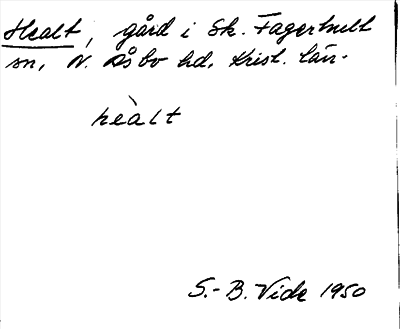 Healt, gård i Sk. Fagerhult
sn, N. Åsbo hd, Krist. län.
hèalt
S.-B. Vide 1950